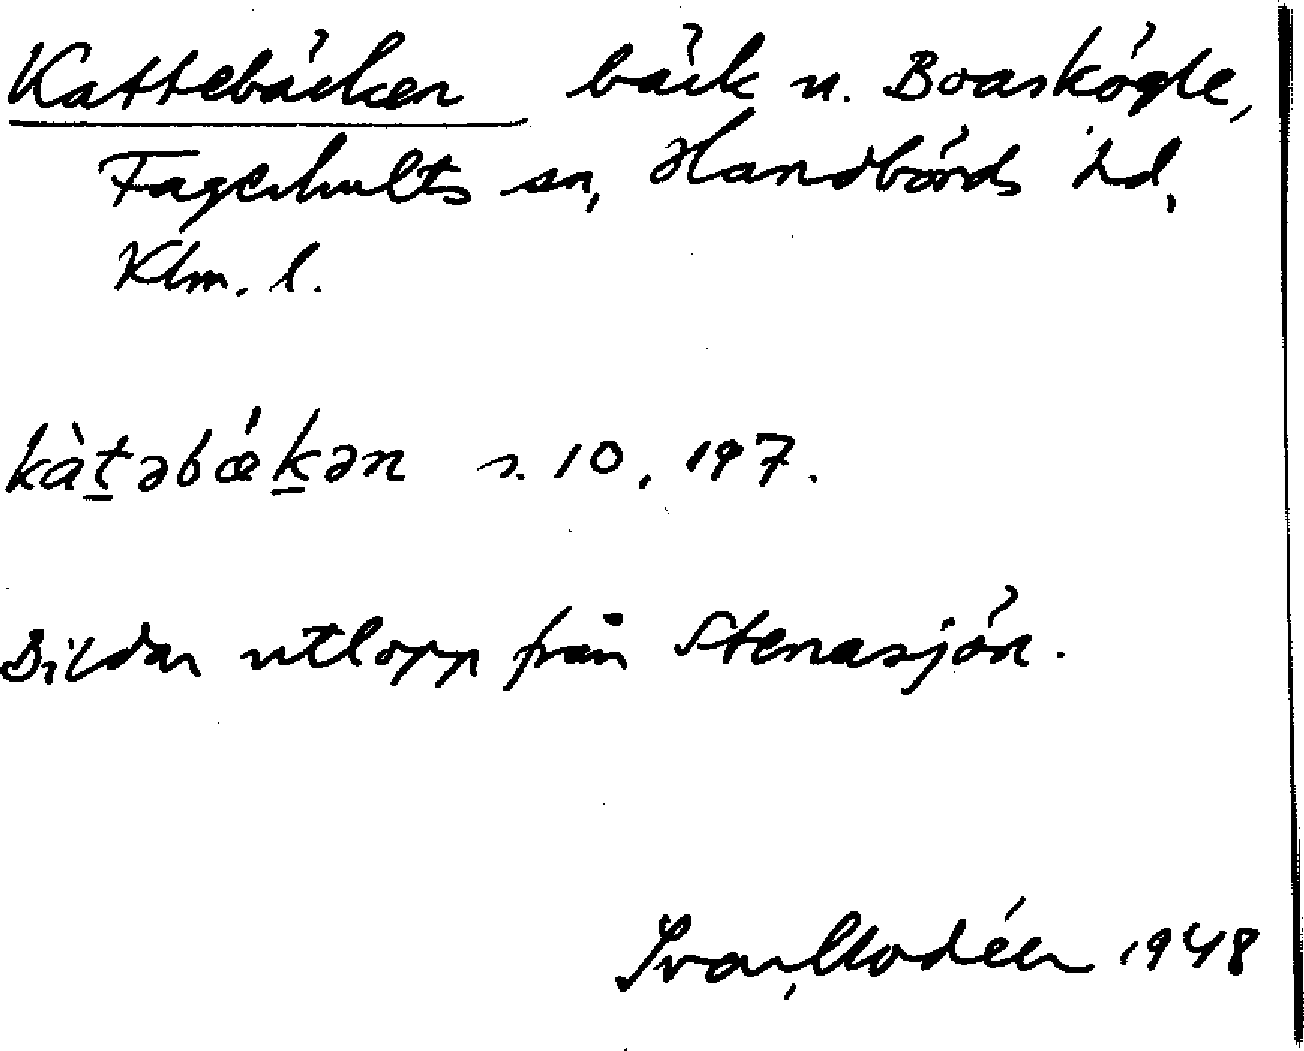 Kattebäcken bäck n. Boaskögle,
Fagerhults sn, Handbörds hd,
Klm. l.
kàt̠əbǽk̠ən s. 10, 197.
Bildar utlopp från Stenasjön.
Ivar Modéer 1948